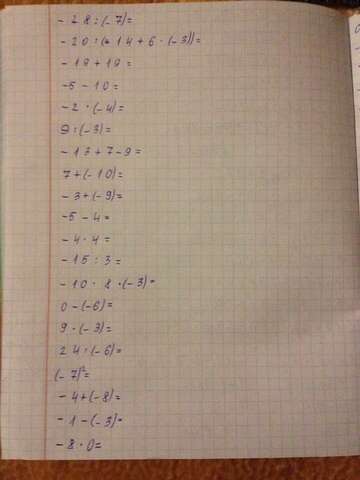 - 28 : (- 7) =
- 20 : (- 14 + 6 · (- 3)) =
- 19 + 19 =
-5 - 10 =
-2 · (- 4) =
9 : (- 3) =
- 13 + 7 - 9 =
7 + (- 10) =
- 3 + (- 9) =
-5 - 4 =
- 4 · 4 =
- 15 : 3 =
- 10 · 8 · (- 3) =
0 - (- 6) =
9 · (- 3) =
24 : (- 6) =
(- 7)² =
- 4 + (- 8) =
- 1 - (- 3) =
- 8 · 0 =